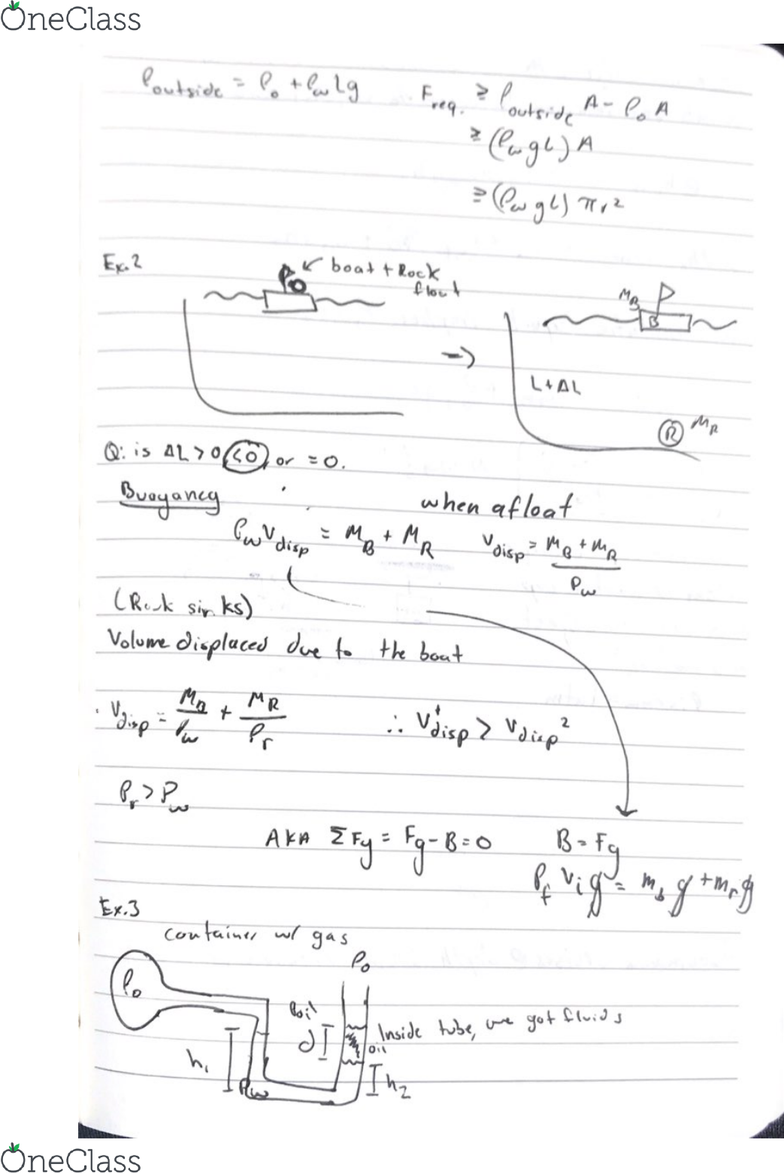 OneClass
Poutside = P₀ + ρw L g Freq. ≥ Poutside A - P₀ A
≥ (ρw g L) A
≥ (ρw g L) πr²
Ex.2
boat + Rock
float
MB
B
→
L + ΔL
R MR
Q: is ΔL > 0 <0, or = 0.
Buoyancy when afloat
ρw Vdisp = MB + MR Vdisp = MB + MR / ρw
(Rock sinks)
Volume displaced due to the boat
Vdisp = MB / ρw + MR / ρr ∴ V¹disp > Vdisp²
ρr > ρw
AKA ΣFy = Fg - B = 0 B = Fg
ρf Vi g = mb g + mr g
Ex.3
container w/ gas
P₀ P₀
ρoil
d Inside tube, we got fluids
oil
h₁ ρw h₂
OneClass